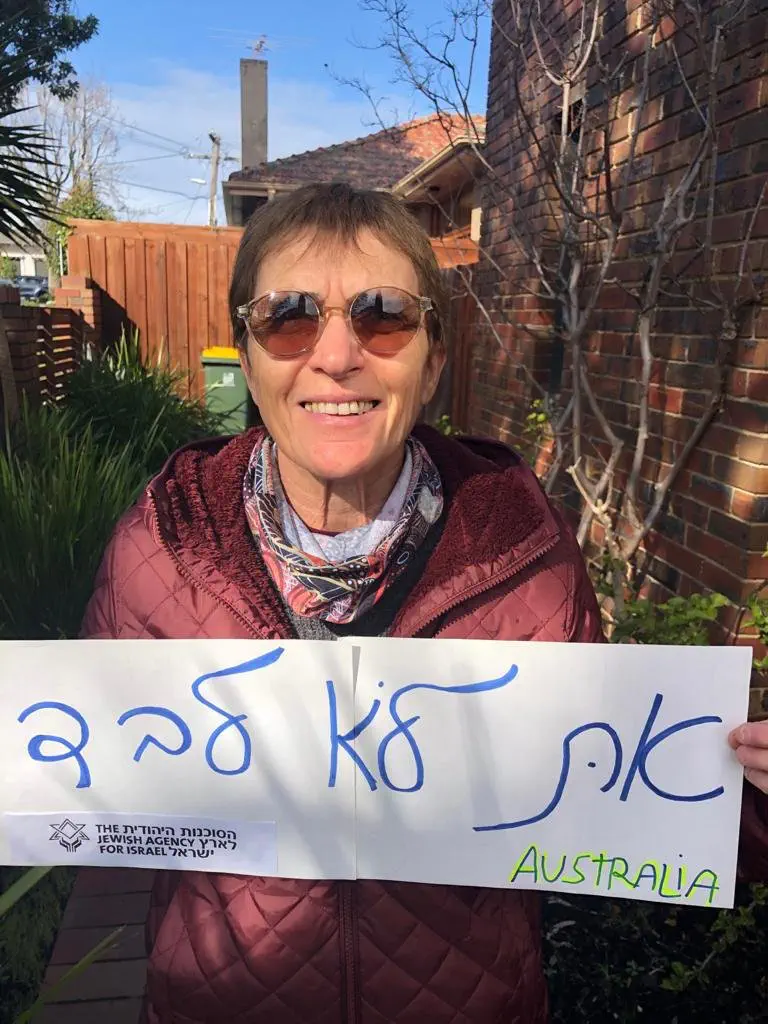 את לא לבד
הסוכנות היהודית
לארץ ישראל
THE
JEWISH AGENCY
FOR ISRAEL
AUSTRALIA